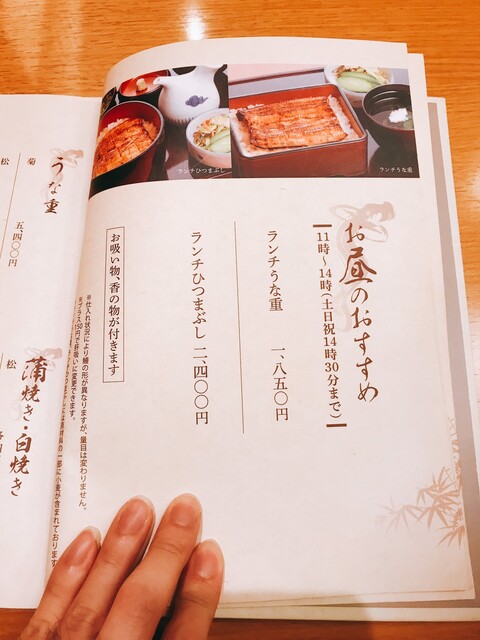 お昼のおすすめ
11時〜14時(土日祝14時30分まで)
ランチうな重 一、八五〇円
ランチひつまぶし 二、四〇〇円
お吸い物、香の物が付きます
※仕入れ状況により鰻の形が異なりますが、量目は変わりません。
※プラス150円で肝吸いに変更できます。
原材料の一部に小麦が含まれております
ランチひつまぶし
ランチうな重
うな重
菊 五、四〇〇円
松
蒲焼き・白焼き
松